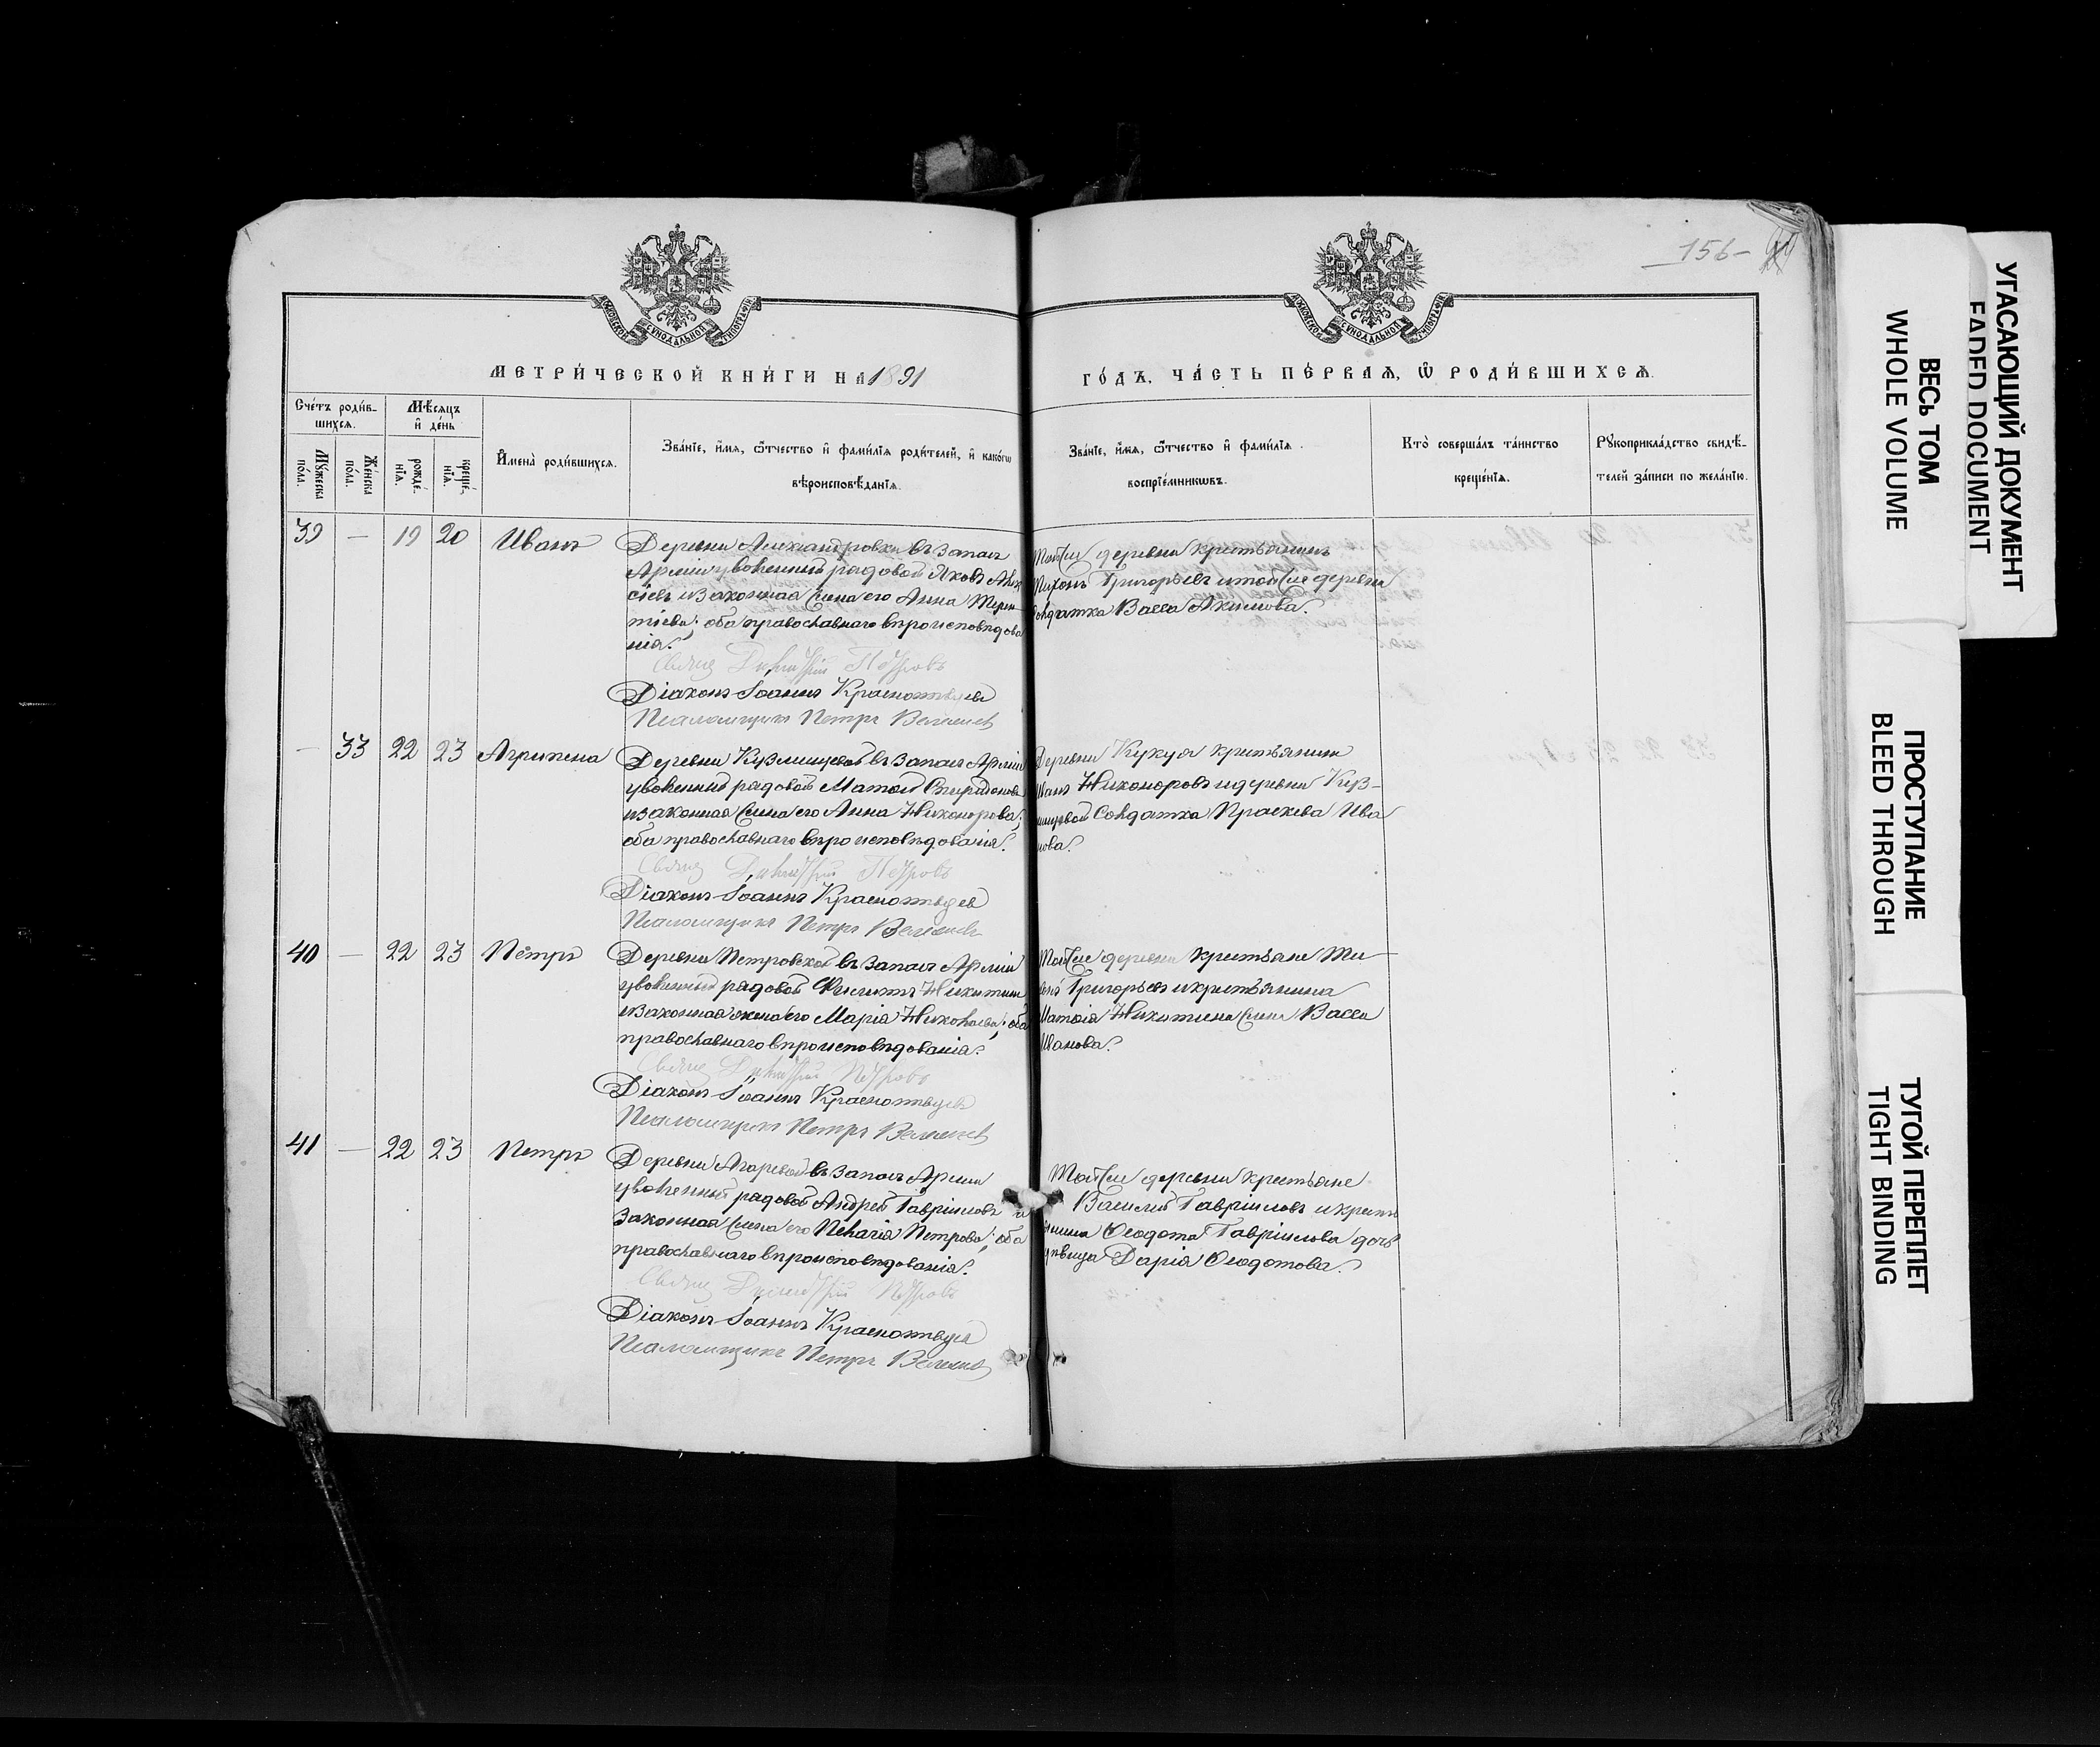 156-
МЕТРИ́ЧЕСКОЙ КНИ́ГИ НА 1891
ГО́ДЪ, ЧА́СТЬ ПЕ́РВАѦ, Ѡ҆ РОДИ́ВШИХСѦ.
Сче́тъ роди́в-
шихсѧ.
Мꙋ́жеска
по́ла.
Же́нска
по́ла.
Мѣ́сѧцъ
и҆ де́нь
рожде́-
нїѧ.
креще́-
нїѧ.
И҆мена̀ роди́вшихсѧ.
Зва́нїе, и҆́мѧ, ѻ҆́тчество и҆ фами́лїѧ роди́телей, и҆ како́гѡ
вѣроисповѣ́данїѧ.
Зва́нїе, и҆́мѧ, ѻ҆́тчество и҆ фами́лїѧ
воспрїе́мникѡвъ.
Кто̀ соверша́лъ та́инство
креще́нїѧ.
Рꙋкоприкла́дство свидѣ́-
телей за́писи по жела́нїю.
39 — 19 20 Иванъ
Деревни Александровки въ запасъ
Арміи уволенный рядовой Яковъ
законная жена его Анна Терен-
тіева; оба православнаго вѣроисповѣдова
нія.
Священ Димитрій Петровъ
Діаконъ Іоаннъ Красноцвѣтовъ
Псаломщикъ Петръ
Той же деревни крестьянинъ
Григорьевъ и той же деревни
солдатка Васса Акимова.
— 33 22 23 Агрипена
Деревни Кузмищевой въ запасъ Арміи
уволенный рядовой Матѳей Спиридоновъ
и законная жена его Анна Никонорова;
оба православнаго вѣроисповѣдованія.
Священ Димитрій Петровъ
Діаконъ Іоаннъ
Псаломщикъ Петръ
Деревни Кукуя крестьянинъ
Иванъ Никоноровъ и деревни Куз-
мищевой солдатка Праскева Ива
нова.
40 — 22 23 Петръ
Деревни Петровской въ запасъ Арміи
уволенный рядовой Филипъ Никитинъ
и законная жена его Марія Николаева; оба
православнаго вѣроисповѣдованія.
Священ Димитрій Петровъ
Діаконъ Іоаннъ
Псаломщикъ Петръ
Той же деревни крестьяне
Григорьевъ и крестьянина
Матѳія Никитина жена Васса
Иванова.
41 — 22 23 Петръ
Деревни Агаревой въ запасъ Арміи
уволенный рядовой Андрей Гавріиловъ и
законная жена его Пелагія Петрова; оба
православнаго вѣроисповѣдованія.
Священ Димитрій Петровъ
Діаконъ Іоаннъ
Псаломщикъ Петръ
Той же деревни крестьяне
Василій Гавріиловъ и кресть
янина Ѳеодота Гавріилова дочь
дѣвица Дарія Ѳеодотова.
УГАСАЮЩИЙ ДОКУМЕНТ
FADED DOCUMENT
ВЕСЬ ТОМ
WHOLE VOLUME
ПРОСТУПАНИЕ
BLEED THROUGH
ТУГОЙ ПЕРЕПЛЕТ
TIGHT BINDING